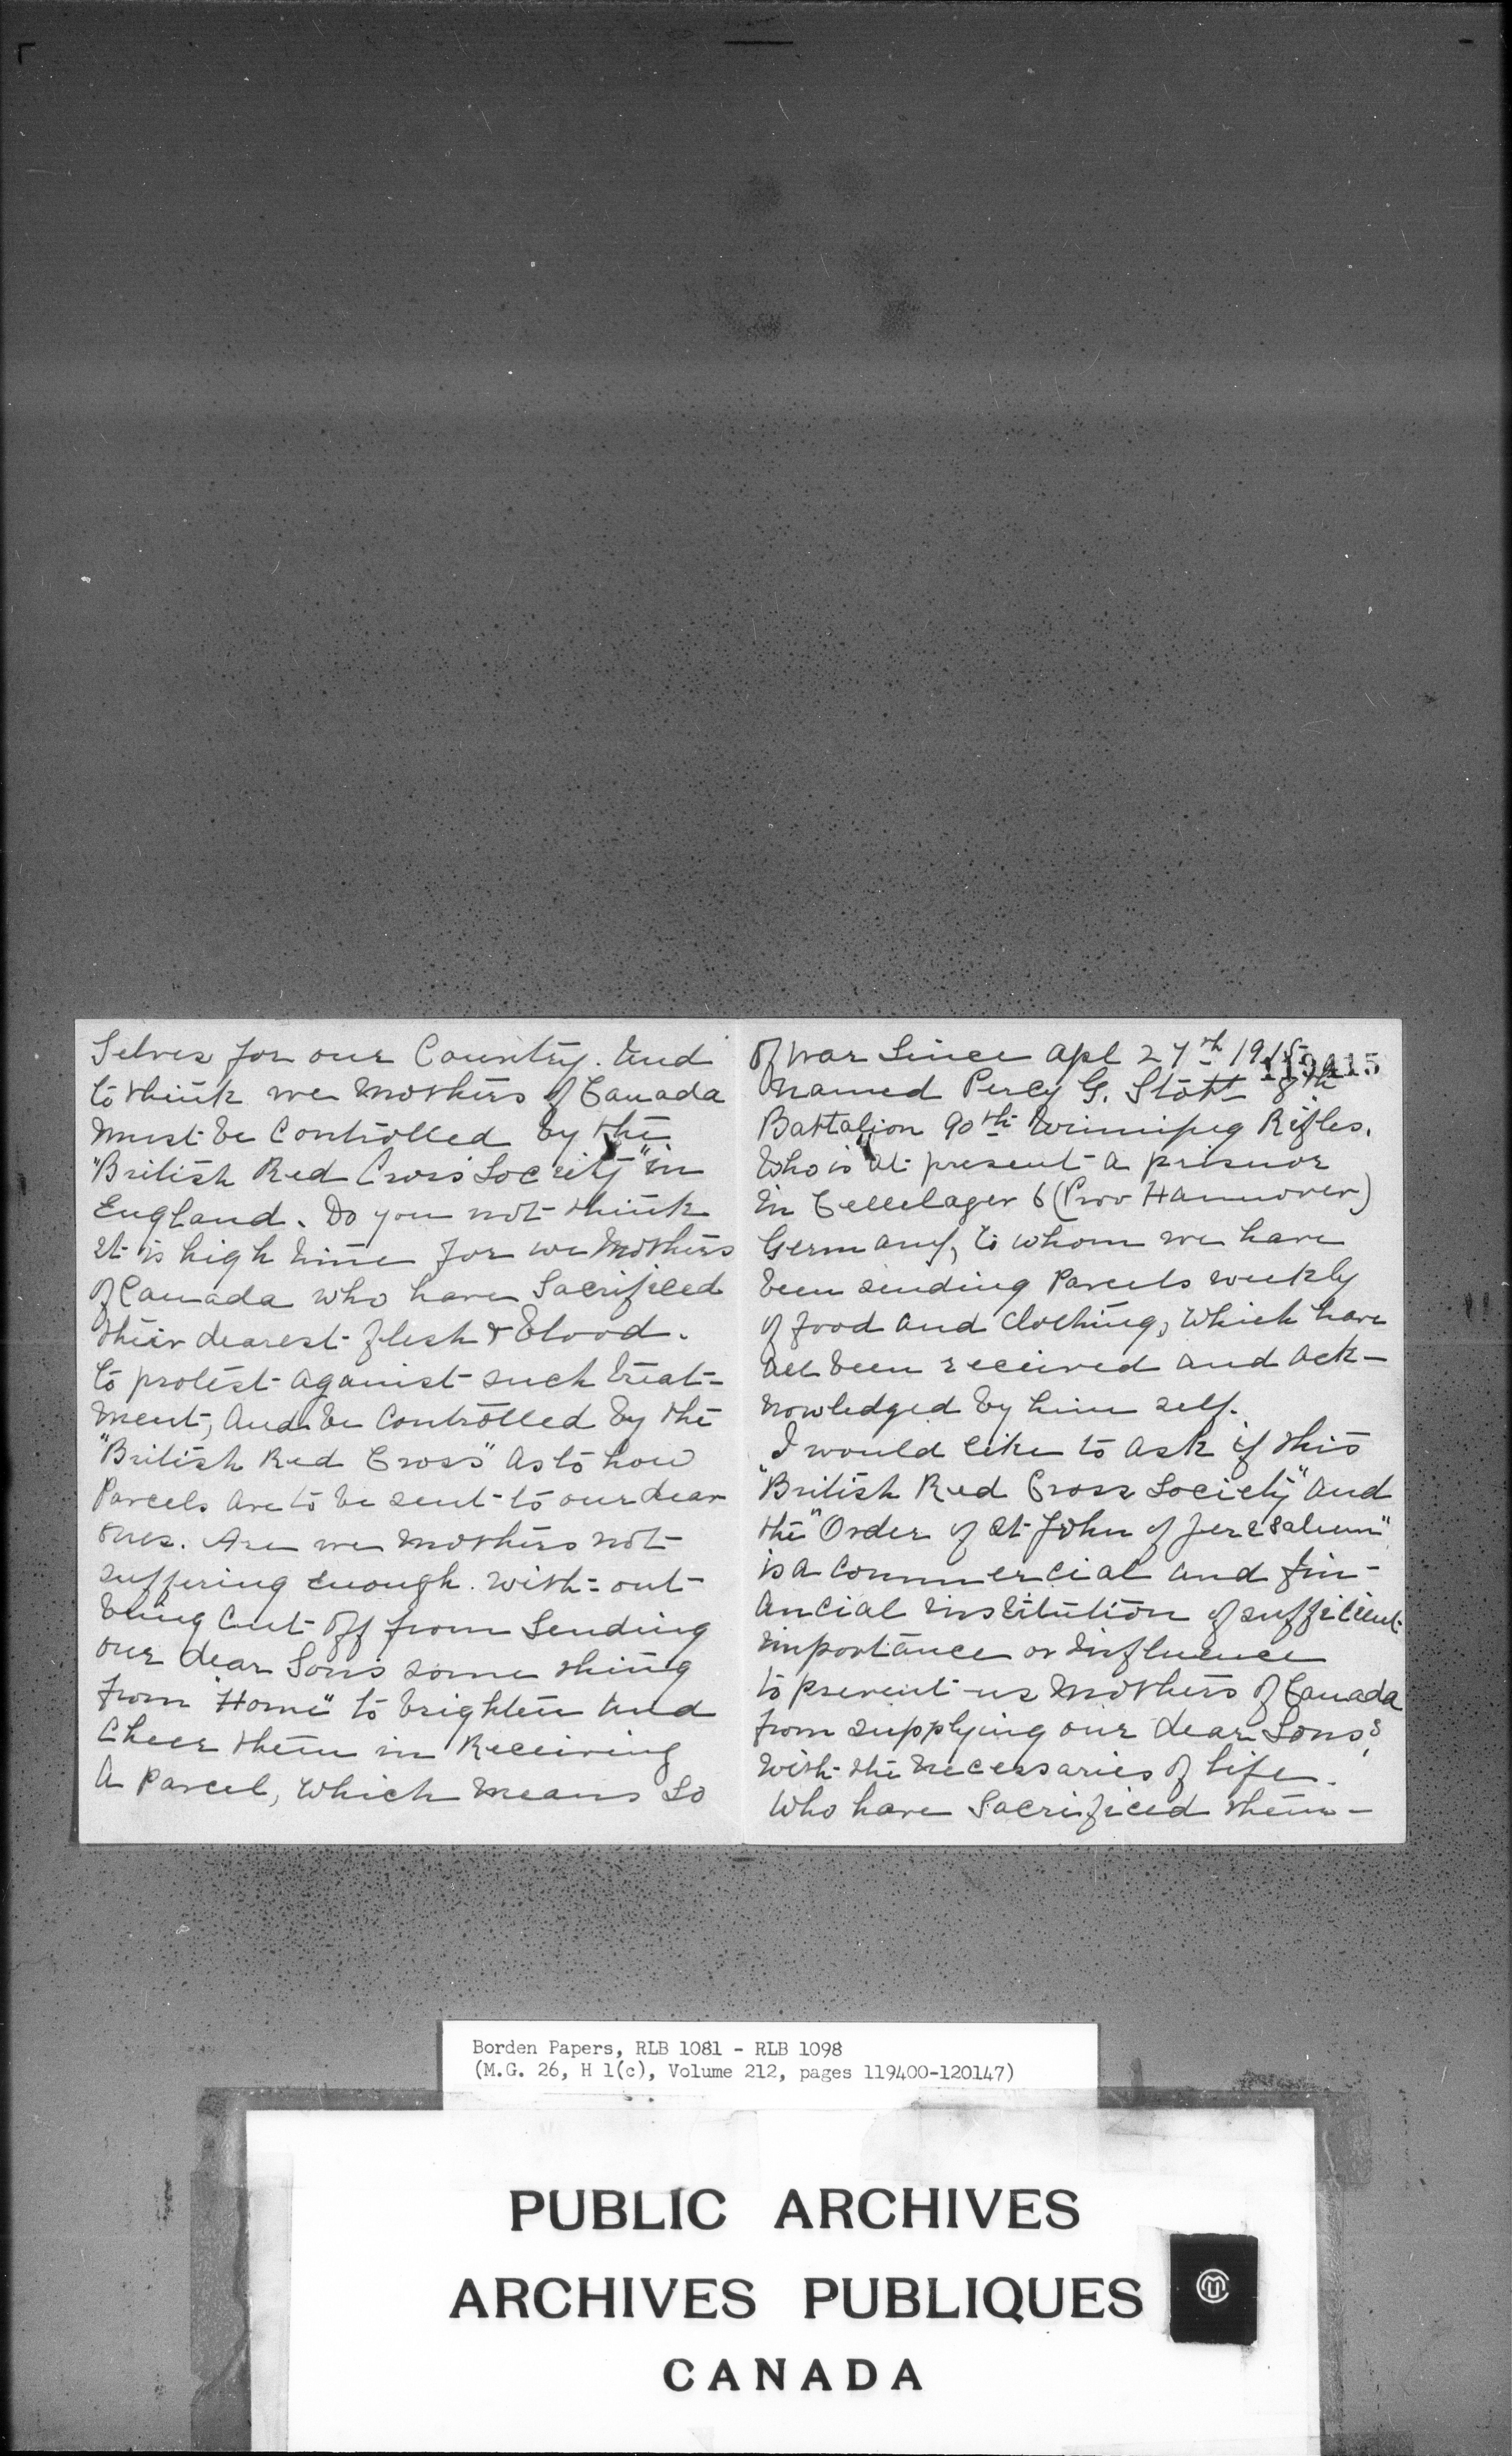 Selves for our Country. And
to think we Mothers of Canada
must be Controlled by the
"British Red Cross Society" in
England. Do you not think
it is high time for we Mothers
of Canada who have Sacrificed
their dearest flesh & blood.
to protest against such treat=
ment, And be Controlled by the
"British Red Cross" As to how
Parcels are to be sent to our dear
ones. Are we mothers not
suffering enough. with=out
being Cut off from Sending
our dear Sons some thing
from "Home" to brighten and
Cheer them in Receiving
A Parcel, Which means So
of war Since Apl 27th 1915
119415
Named Percy G. Stott 8th
Battalion 90th Winnipeg Rifles.
Who is at present a prisnor
in Cellelager 6 (Prov Hannover)
Germany, to whom we have
been sending Parcels weekly
of food and clothing, which have
all been received and ack-
nowledged by him self.
I would like to ask if this
"British Red Cross Society" And
the "Order of St John of Jeresaleum"
is a Commercial and fin-
ancial institution of sufficient
importance or influence
to prevent us Mothers of Canada
from supplying our dear Sons,
with the necessaries of life.
Who have Sacrificed them-
Borden Papers, RLB 1081 - RLB 1098
(M.G. 26, H 1(c), Volume 212, pages 119400-120147)
PUBLIC ARCHIVES
ARCHIVES PUBLIQUES
CANADA